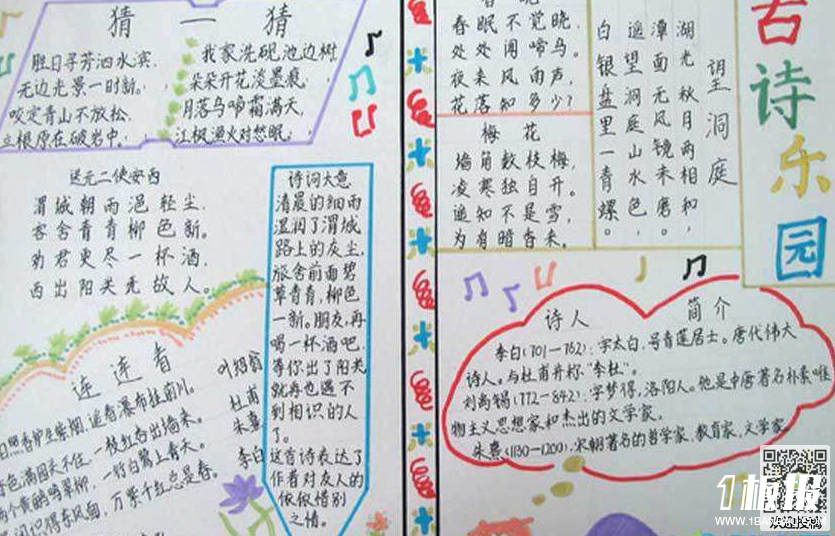 猜一猜
胜日寻芳泗水滨,
无边光景一时新。
咬定青山不放松,
立根原在破岩中。
我家洗砚池边树
朵朵开花淡墨痕,
月落乌啼霜满天,
江枫渔火对愁眠,
送元二使安西
渭城朝雨浥轻尘,
客舍青青柳色新。
劝君更尽一杯酒,
西出阳关无故人。
连连看
日照香炉生紫烟
遥看瀑布挂前川。
春色满园关不住,
一枝红杏出墙来。
两个黄鹂鸣翠柳,
一行白鹭上青天。
等闲识得东风面,
万紫千红总是春。
叶绍翁
杜甫
朱熹
李白
诗词大意
清晨的细雨
湿润了渭城
路上的灰尘,
旅舍前面碧
草青青,柳色
一新。朋友,再
喝一杯酒吧,
等你出了阳关
就再也遇不
到相识的人
了。
这首诗表达了
作者对友人的
依依惜别
之情。
春眠不觉晓,
处处闻啼鸟。
夜来风雨声,
花落知多少?
梅花
墙角数枝梅,
凌寒独自开。
遥知不是雪,
为有暗香来。
望洞庭
湖光秋月两相和,
潭面无风镜未磨。
遥望洞庭山水色,
白银盘里一青螺。
古诗乐园
诗人简介
李白(701—762):字太白,号青莲居士。唐代伟大
诗人。与杜甫并称“李杜”。
刘禹锡(772—842):字梦得,洛阳人。他是中唐著名朴素唯
物主义思想家和杰出的文学家。
朱熹(1130—1200),宋朝著名的哲学家、教育家、文学家。
1板报
WWW.1BANBAO.COM